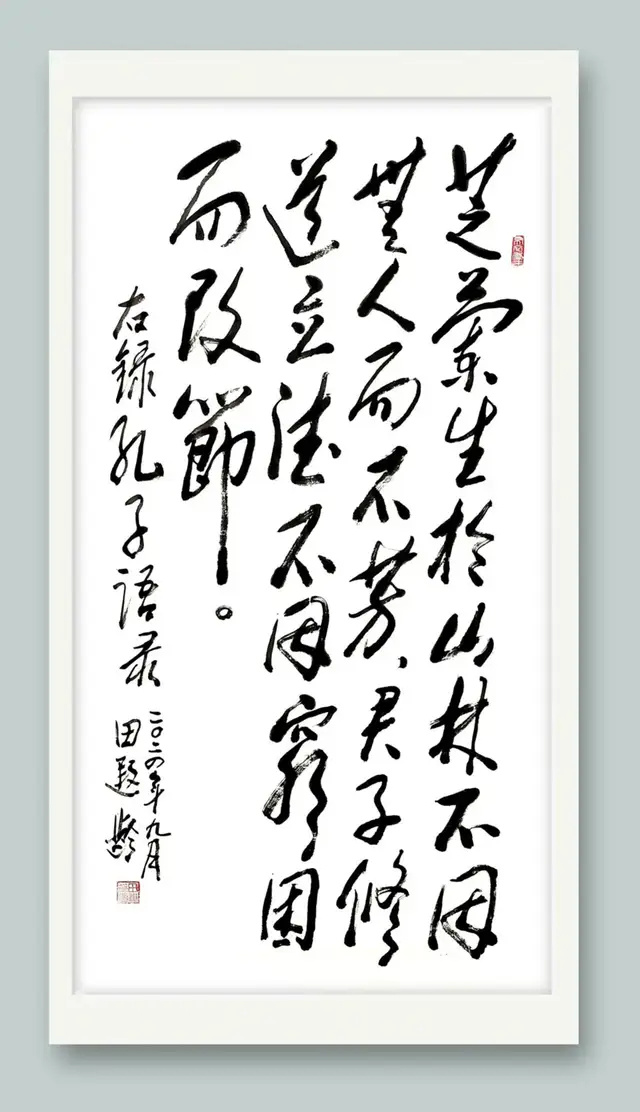 芝蘭生於山林不因
無人而不芳、君子修
道立德不因窮困
而改節。
右録孔子语录
二〇二四年九月
田遐齡